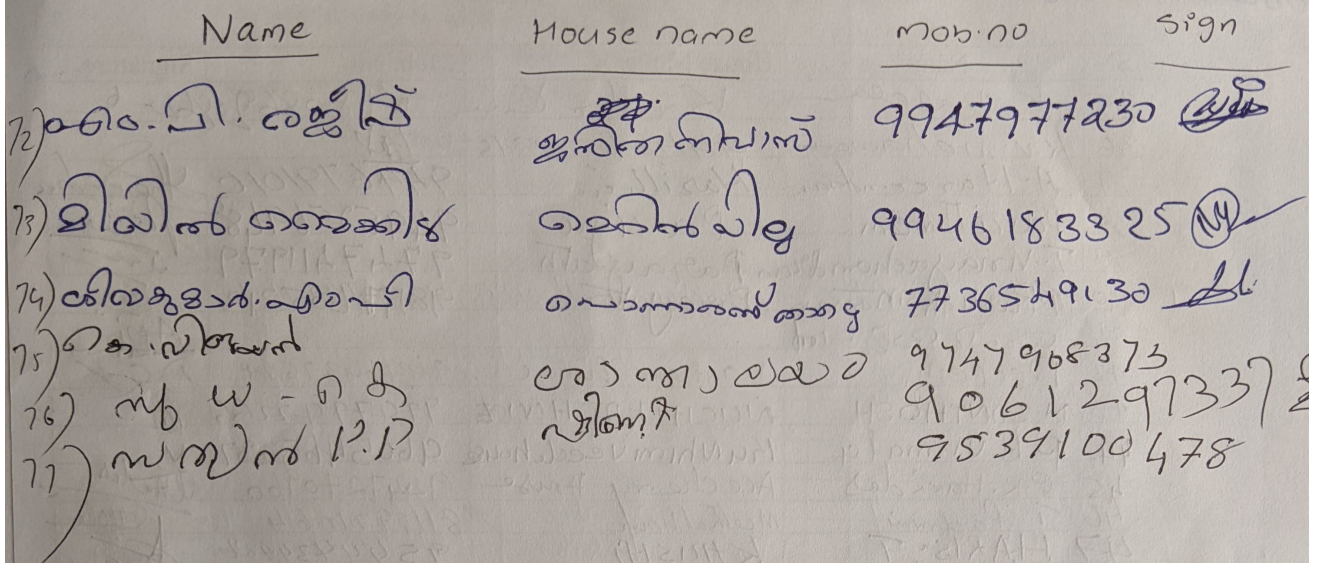 Name House name Mob.no Sign
72) എം.പി. രജീഷ് നിവാസ് 9947977230
73) മിലിൻ മൈക്കിൾ മെറിൻ വില്ല 9946183325
74) ശിവകുമാർ.എം.പി 7736549130
75) കെ.വിജയൻ 9747968373
76) സുധ - കെ ശാന്താലയം 9061297337
77) സത്യൻ P.P 9539100478